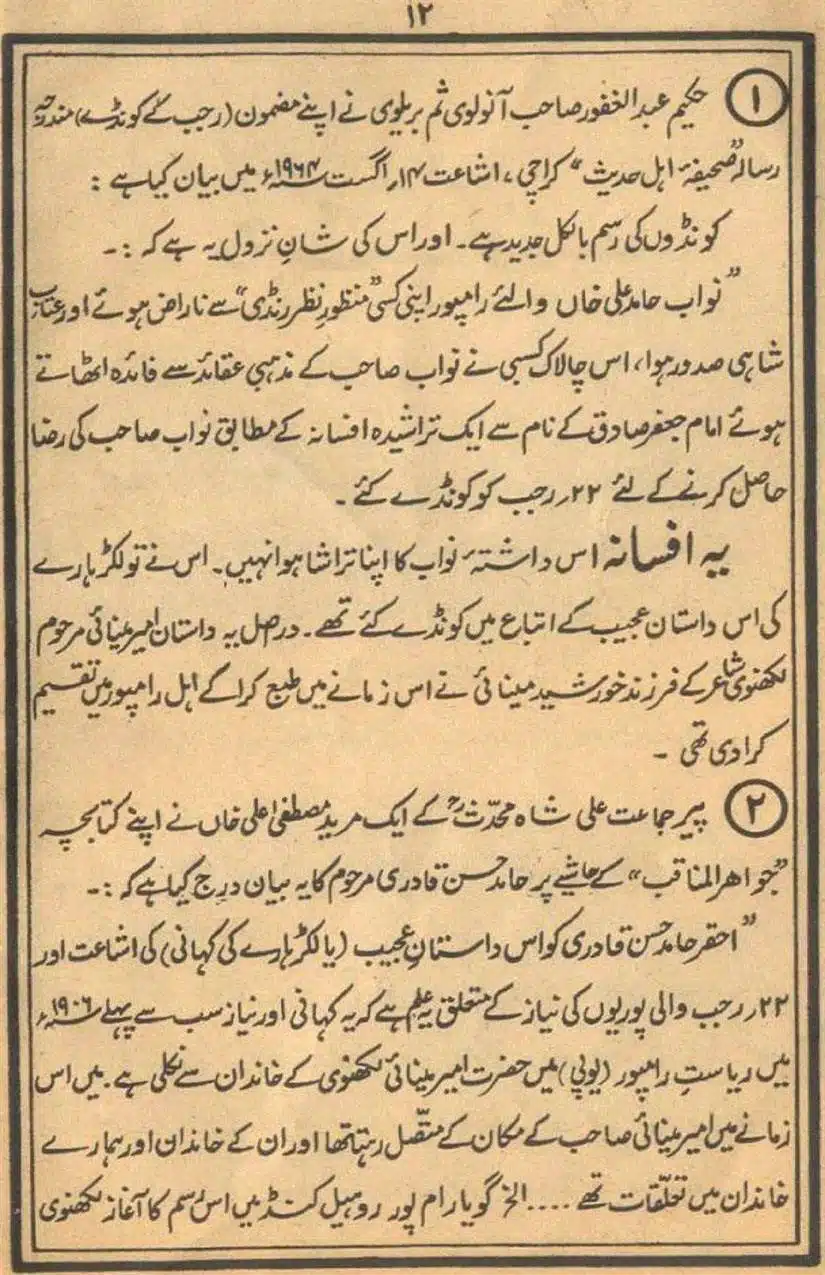 ۱۲
۱ حکیم عبدالغفور صاحب آنولوی ثم بریلوی نے اپنے مضمون (رجب کے کونڈے) مندرجہ
رسالہ "صحیفۂ اہل حدیث" کراچی، اشاعت ۱۴؍ اگست ۱۹۶۴ء میں بیان کیا ہے :
کونڈوں کی رسم بالکل جدید ہے۔ اور اس کی شانِ نزول یہ ہے کہ :۔
"نواب حامد علی خاں والئے رامپور اپنی کسی "منظورِ نظر رنڈی" سے ناراض ہوئے اور عتاب
شاہی صدور ہوا، اس چالاک کسبی نے نواب صاحب کے مذہبی عقائد سے فائدہ اٹھاتے
ہوئے امام جعفر صادق کے نام سے ایک تراشیدہ افسانہ کے مطابق نواب صاحب کی رضا
حاصل کرنے کے لئے ۲۲؍ رجب کو کونڈے کئے ۔
یہ افسانہ اس داشتۂ نواب کا اپنا تراشا ہوا نہیں۔ اس نے تو لکڑہارے
کی اس داستان عجیب کے اتباع میں کونڈے کئے تھے۔ دراصل یہ داستان امیر مینائی مرحوم
لکھنوی شاعر کے فرزند خورشید مینائی نے اس زمانے میں طبع کرا کے اہل رامپور میں تقسیم
کرا دی تھی ۔
۲ پیر جماعت علی شاہ محدّثؒ کے ایک مرید مصطفیٰ علی خاں نے اپنے کتابچہ
"جواہر المناقب" کے حاشیے پر حامد حسن قادری مرحوم کا یہ بیان درج کیا ہے کہ :۔
"احقر حامد حسن قادری کو اس داستانِ عجیب (یا لکڑہارے کی کہانی) کی اشاعت اور
۲۲؍ رجب والی پوریوں کی نیاز کے متعلق یہ علم ہے کہ یہ کہانی اور نیاز سب سے پہلے ۱۹۰۶ء
میں ریاستِ رامپور (یوپی) میں حضرت امیر مینائی لکھنوی کے خاندان سے نکلی ہے۔ میں اس
زمانے میں امیر مینائی صاحب کے مکان کے متّصل رہتا تھا اور ان کے خاندان اور ہمارے
خاندان میں تعلّقات تھے .... الخ گویا رام پور روہیل کنڈ میں اس رسم کا آغاز لکھنوی